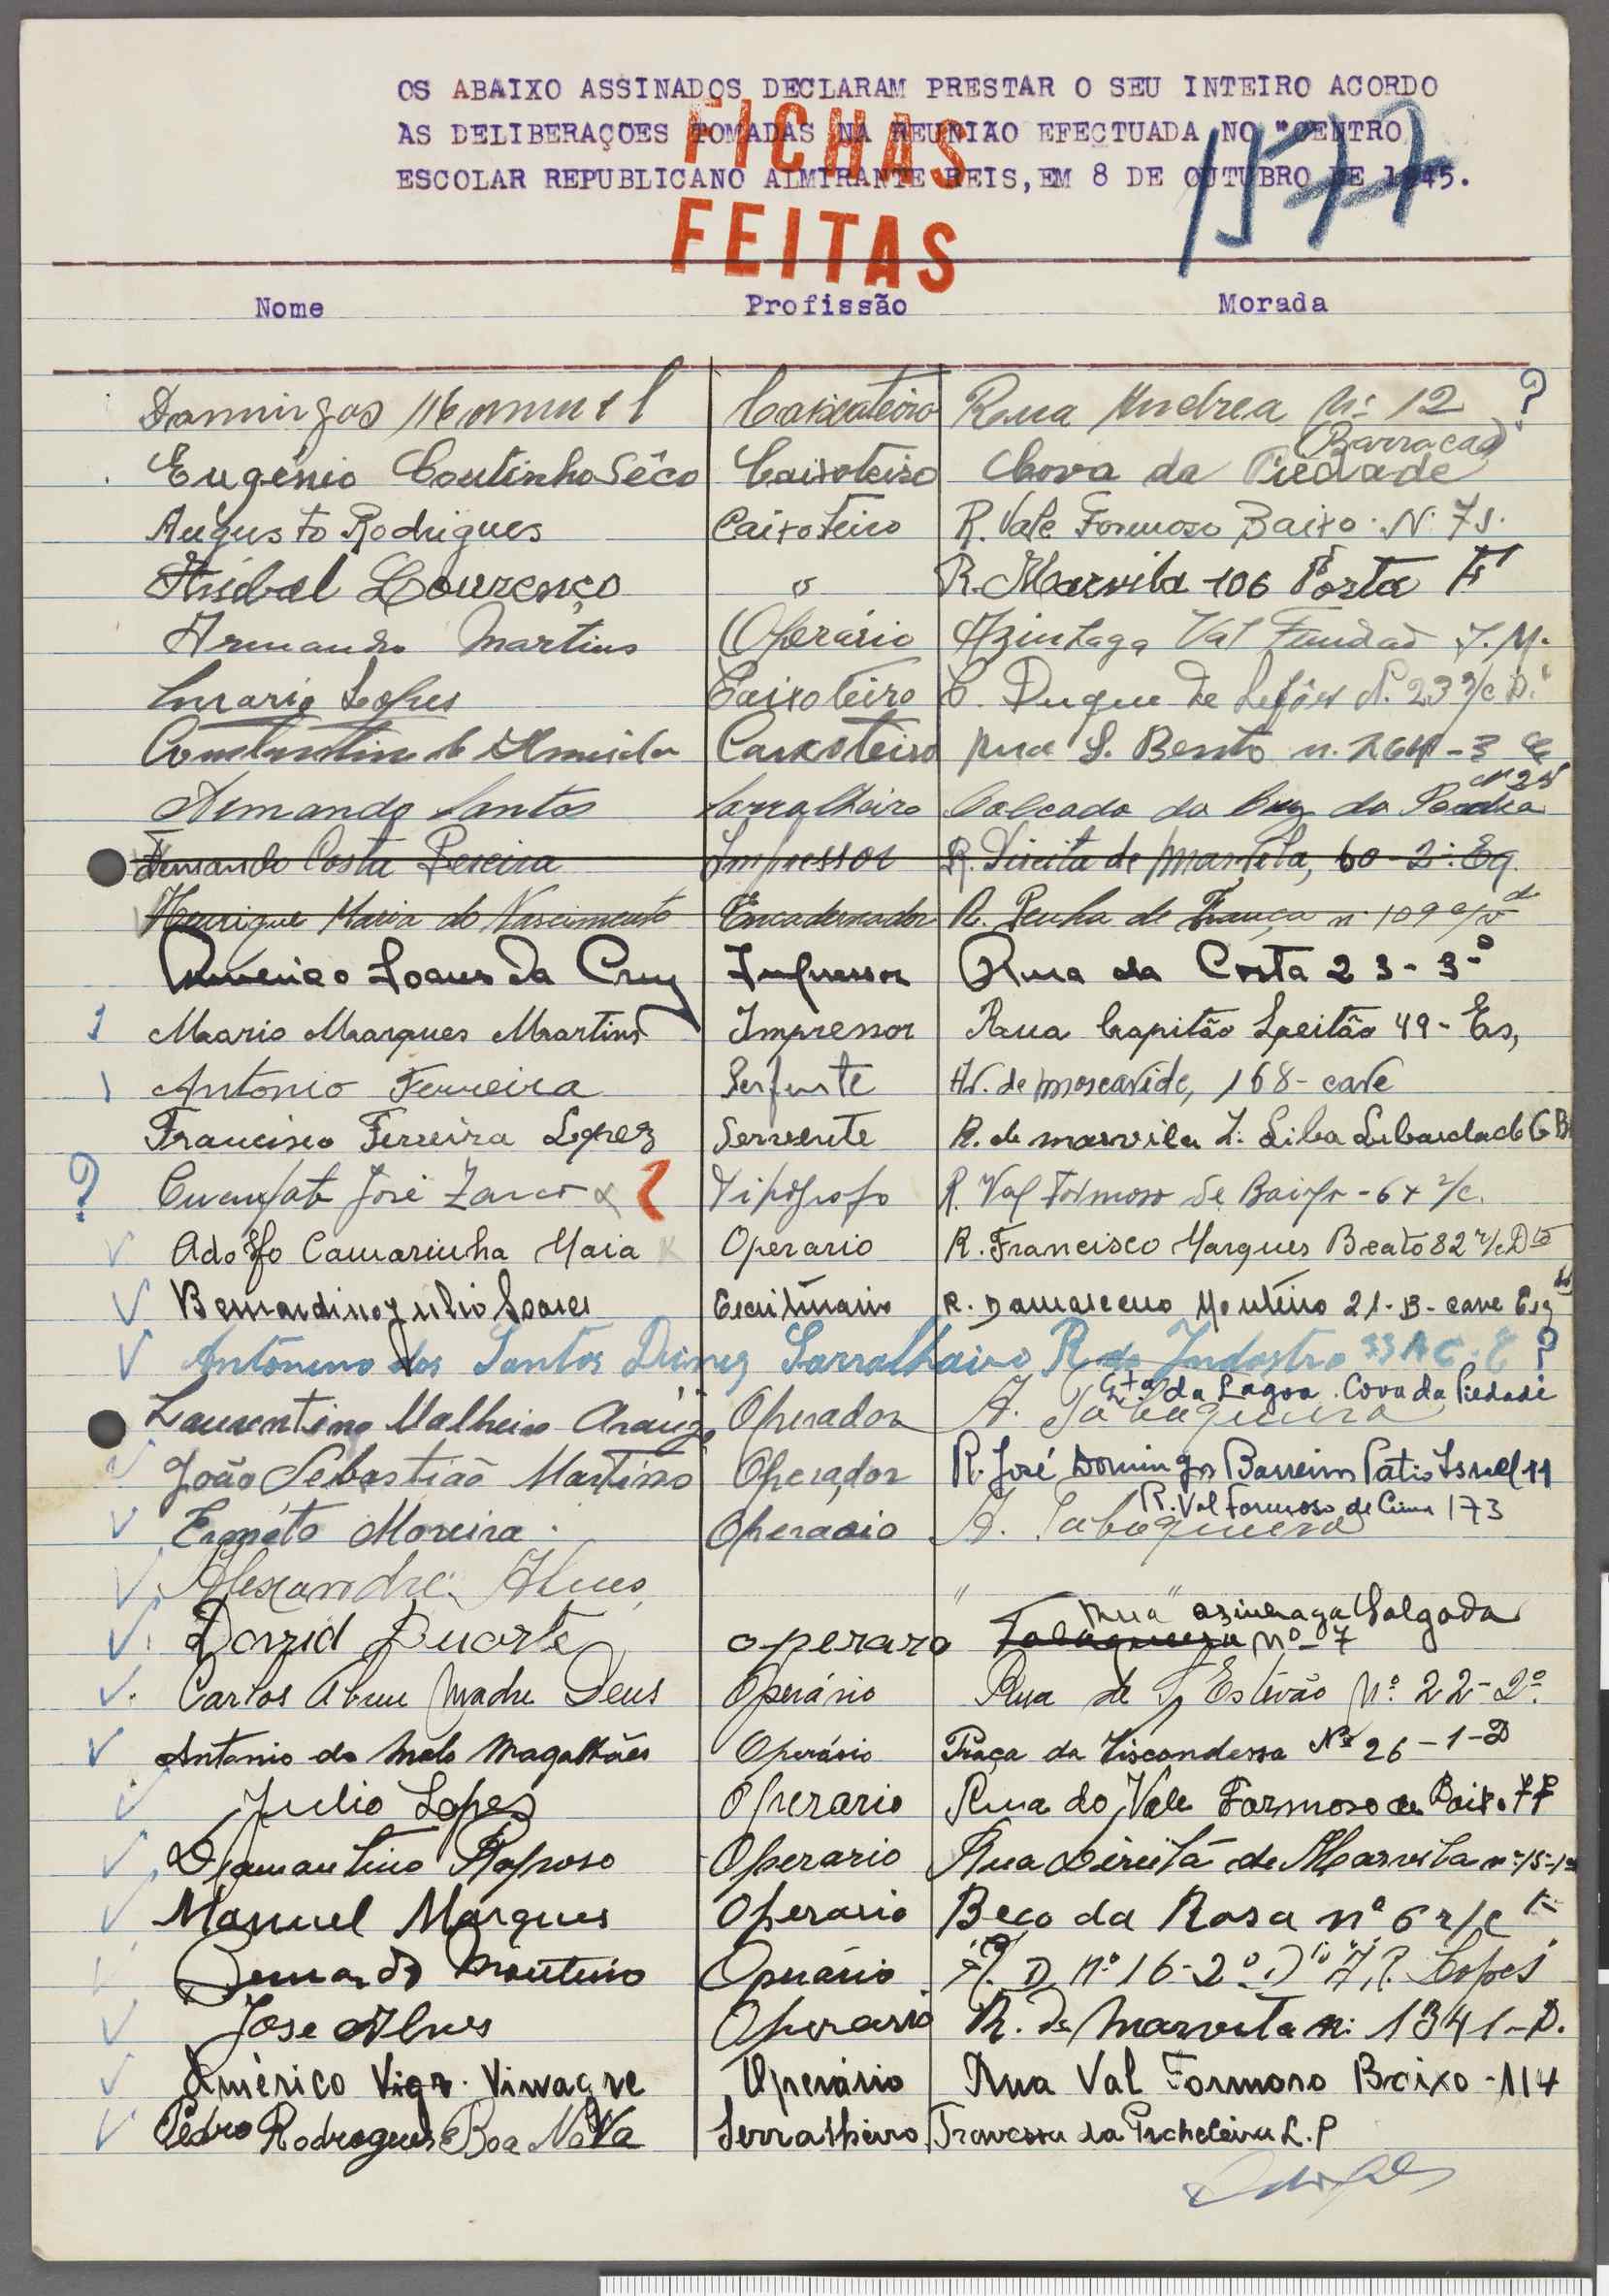 OS ABAIXO ASSINADOS DECLARAM PRESTAR O SEU INTEIRO ACORDO
AS DELIBERAÇÕES TOMADAS NA REUNIÃO EFECTUADA NO "CENTRO
ESCOLAR REPUBLICANO ALMIRANTE REIS, EM 8 DE OUTUBRO DE 1945.
FICHAS
FEITAS
1577
Nome Profissão Morada
Domingos Manuel Caixoteiro Rua Andrea Nº 12 ?
Eugénio Coutinho Sêco Caixoteiro Cova da Piedade (Barracas)
Augusto Rodrigues Caixoteiro R. Vale Formoso Baixo N. 75.
Anibal Lourenço " R. Marvila 106 Porta
Armando Martins Operário Azinhaga Val Fundão J. M.
Mario Lopes Caixoteiro C. Duque de Lafões N. 23 r/c D.
Constantino de Almeida Caixoteiro Rua S. Bento n. 264-3
Armando Santos Serralheiro Calçada da Cruz da Pedra Nº 25
Fernando Costa Pereira Impressor R. Direita de Marvila, 60-2º Eq.
Henrique Maria do Nascimento Encadernador R. Penha de França nº 109
Américo Soares da Cruz Impressor Rua da Costa 23-3º
Mario Marques Martins Impressor Rua Capitão Leitão 49-Es,
António Ferreira Servente Av. de Moscavide, 168-cave
Francisco Ferreira Lopez Servente R. de Marvila
? Cucufate José Zarco x ? Tipógrafo R. Val Formoso de Baixo - 6 r/c.
Adolfo Camarinha Maia Operario R. Francisco Marques Beato 82 r/c Dto
Bernardino Julio Soares Escriturario R. Damasceno Monteiro 21-B-cave Esq
Antonino dos Santos Diniz Serralheiro R do Indostro 33 A C. E ?
Laurentino Malheiro Araújo Operador A Tabaqueira Qta da Lagoa. Cova da Piedade
João Sebastião Martins Operador R. José Domingos Barreiros Pátio Israel 11
Ernesto Moreira Operario A Tabaqueira R. Val Formoso de Cima 173
Alexandre Alves " "
David Duarte operaro Tabaqueira Rua azinhaga Salgada nº 7
Carlos Abreu Madre Deus Operário Rua de Sto Estevão Nº 22-2º
Antonio de Melo Magalhães Operário Praça da Viscondessa Nº 26-1-D
Julio Lopes Operario Rua do Vale Formoso de Baixo
Diamantino Raposo Operario Rua Direita de Marvila nº 15-1º
Manuel Marques Operario Beco da Rosa nº 6 r/c
Bernardo Monteiro Operário R. D. nº 16-2º Dto
José Alves Operario R. de Marvila nº 134 1-D.
Américo Vinagre Operário Rua Val Formoso Baixo - 114
Pedro Rodrigues Boa Nova Serralheiro Travessa da Picheleira L.P